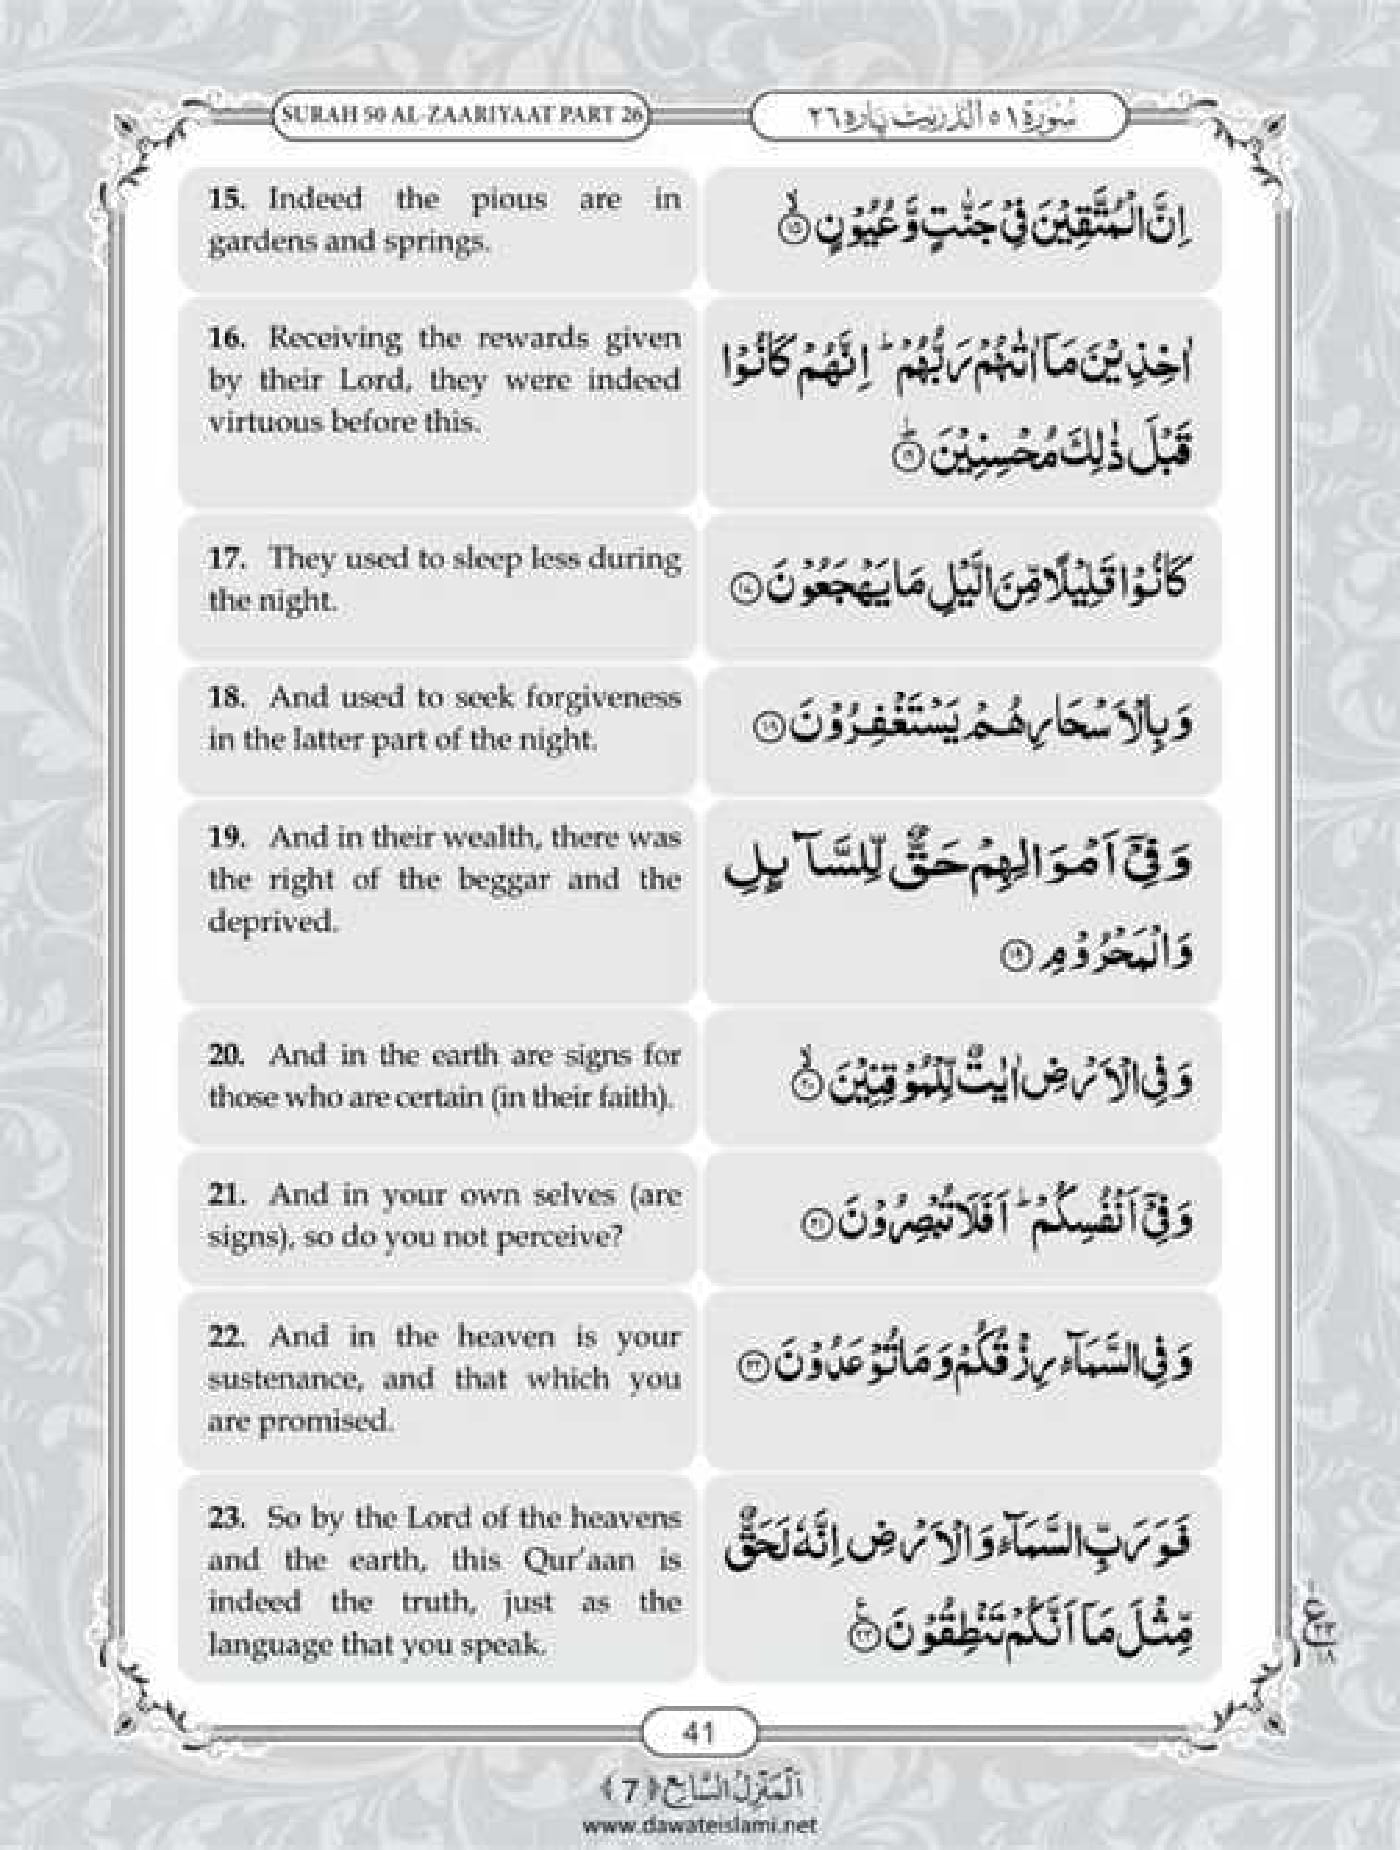 SURAH 50 AL-ZAARIYAAT PART 26
سُوْرَة ٥١ الذّٰرِیٰت پارہ ٢٦
15. Indeed the pious are in
gardens and springs.
اِنَّ الْمُتَّقِیْنَ فِیْ جَنّٰتٍ وَّ عُیُوْنٍۙ﴿۱۵﴾
16. Receiving the rewards given
by their Lord, they were indeed
virtuous before this.
اٰخِذِیْنَ مَاۤ اٰتٰىهُمْ رَبُّهُمْ ؕ اِنَّهُمْ كَانُوْا
قَبْلَ ذٰلِكَ مُحْسِنِیْنَؕ﴿۱۶﴾
17. They used to sleep less during
the night.
كَانُوْا قَلِیْلًا مِّنَ الَّیْلِ مَا یَهْجَعُوْنَ﴿۱۷﴾
18. And used to seek forgiveness
in the latter part of the night.
وَ بِالْاَسْحَارِ هُمْ یَسْتَغْفِرُوْنَ﴿۱۸﴾
19. And in their wealth, there was
the right of the beggar and the
deprived.
وَ فِیْۤ اَمْوَالِهِمْ حَقٌّ لِّلسَّآىٕلِ
وَ الْمَحْرُوْمِ﴿۱۹﴾
20. And in the earth are signs for
those who are certain (in their faith).
وَ فِی الْاَرْضِ اٰیٰتٌ لِّلْمُوْقِنِیْنَۙ﴿۲۰﴾
21. And in your own selves (are
signs), so do you not perceive?
وَ فِیْۤ اَنْفُسِكُمْ ؕ اَفَلَا تُبْصِرُوْنَ﴿۲۱﴾
22. And in the heaven is your
sustenance, and that which you
are promised.
وَ فِی السَّمَآءِ رِزْقُكُمْ وَ مَا تُوْعَدُوْنَ﴿۲۲﴾
23. So by the Lord of the heavens
and the earth, this Qur'aan is
indeed the truth, just as the
language that you speak.
فَوَرَبِّ السَّمَآءِ وَ الْاَرْضِ اِنَّهٗ لَحَقٌّ
مِّثْلَ مَاۤ اَنَّكُمْ تَنْطِقُوْنَ۠﴿۲۳﴾
ع
٢٣
١٨
41
اَلْمَنْزِلُ السَّابِع ﴿7﴾
www.dawateislami.net